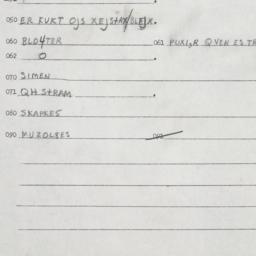 050 ER FUKT OJS XEJSTAX/BLEJX.
060 BLOTER 061 PUXLR QVEN ES TR
062 O
070 SIMEN
071 QH STRAM
080 SKAPKES
090 MUZOLBES